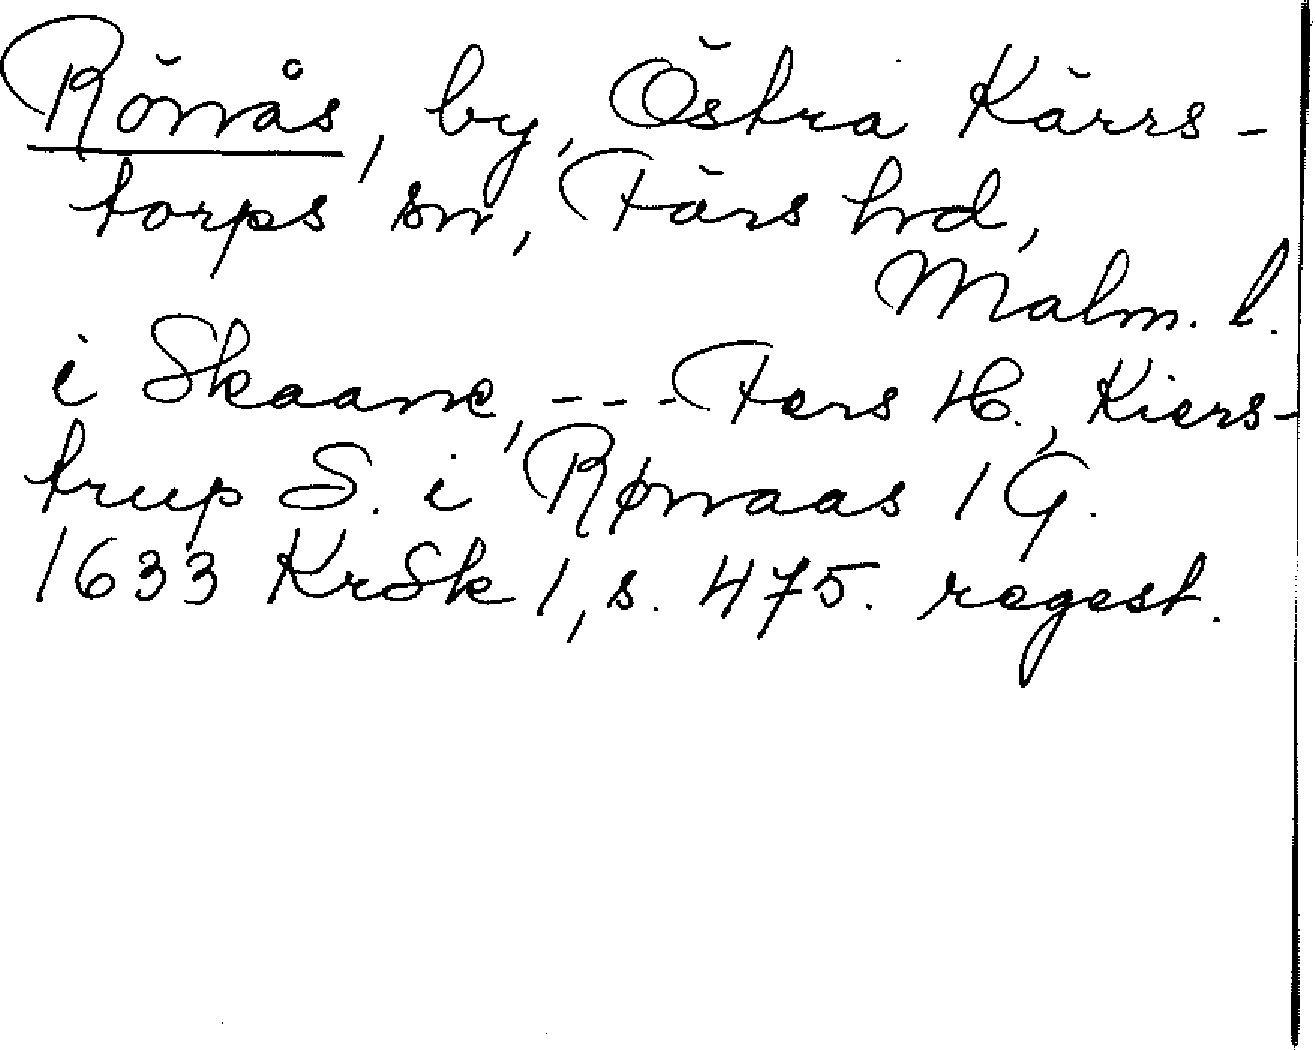 Rönås, by, Östra Kärrs-
torps sn, Färs hd,
Malm. l.
i Skaane, --- Fers H., Kiers-
trup S. i Rønaas 1 G.
1633 KrSk 1, s. 475. regest.